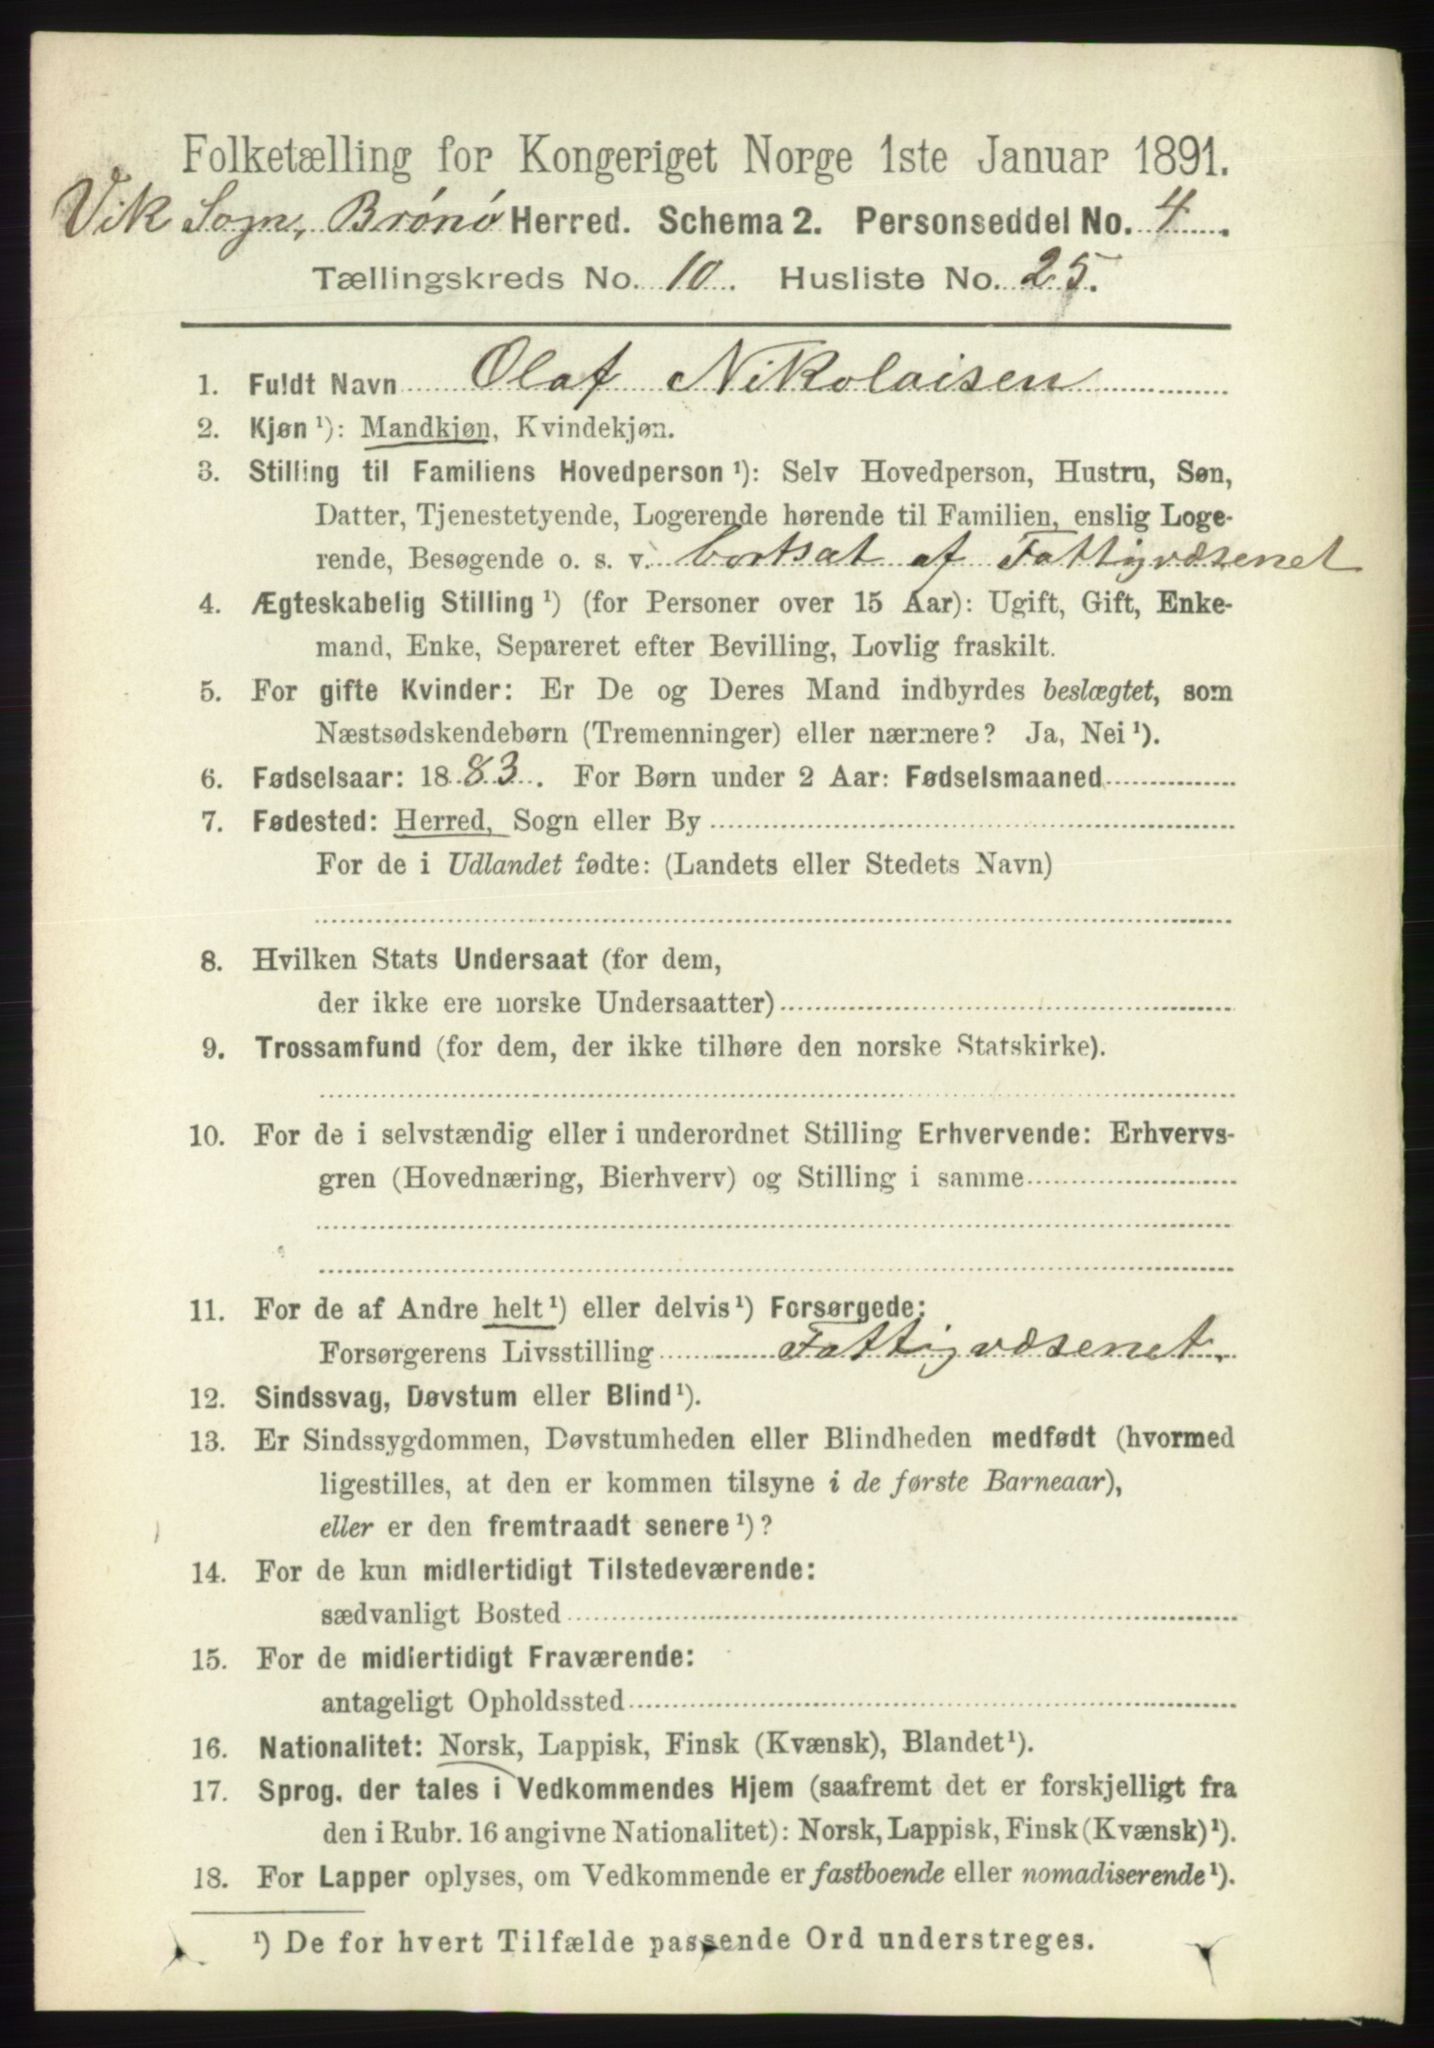 Folketælling for Kongeriget Norge 1ste Januar 1891.
Vik Sogn, Brønø Herred. Schema 2. Personseddel No. 4.
Tællingskreds No. 10. Husliste No. 25.
1. Fuldt Navn Olaf Nikolaisen
2. Kjøn ¹): Mandkjøn, Kvindekjøn.
3. Stilling til Familiens Hovedperson ¹): Selv Hovedperson, Hustru, Søn,
Datter, Tjenestetyende, Logerende hørende til Familien, enslig Loge-
rende, Besøgende o. s. v. bortsat af Fattigvæsenet
4. Ægteskabelig Stilling ¹) (for Personer over 15 Aar): Ugift, Gift, Enke-
mand, Enke, Separeret efter Bevilling, Lovlig fraskilt.
5. For gifte Kvinder: Er De og Deres Mand indbyrdes beslægtet, som
Næstsødskendebørn (Tremenninger) eller nærmere? Ja, Nei ¹).
6. Fødselsaar: 1883. For Børn under 2 Aar: Fødselsmaaned
7. Fødested: Herred, Sogn eller By
For de i Udlandet fødte: (Landets eller Stedets Navn)
8. Hvilken Stats Undersaat (for dem,
der ikke ere norske Undersaatter)
9. Trossamfund (for dem, der ikke tilhøre den norske Statskirke).
10. For de i selvstændig eller i underordnet Stilling Erhvervende: Erhvervs-
gren (Hovednæring, Bierhverv) og Stilling i samme
11. For de af Andre helt ¹) eller delvis ¹) Forsørgede:
Forsørgerens Livsstilling Fattigvæsenet.
12. Sindssvag, Døvstum eller Blind ¹).
13. Er Sindssygdommen, Døvstumheden eller Blindheden medfødt (hvormed
ligestilles, at den er kommen tilsyne i de første Barneaar),
eller er den fremtraadt senere ¹)?
14. For de kun midlertidigt Tilstedeværende:
sædvanligt Bosted
15. For de midlertidigt Fraværende:
antageligt Opholdssted
16. Nationalitet: Norsk, Lappisk, Finsk (Kvænsk), Blandet ¹).
17. Sprog, der tales i Vedkommendes Hjem (saafremt det er forskjelligt fra
den i Rubr. 16 angivne Nationalitet): Norsk, Lappisk, Finsk (Kvænsk) ¹).
18. For Lapper oplyses, om Vedkommende er fastboende eller nomadiserende ¹).
¹) De for hvert Tilfælde passende Ord understreges.